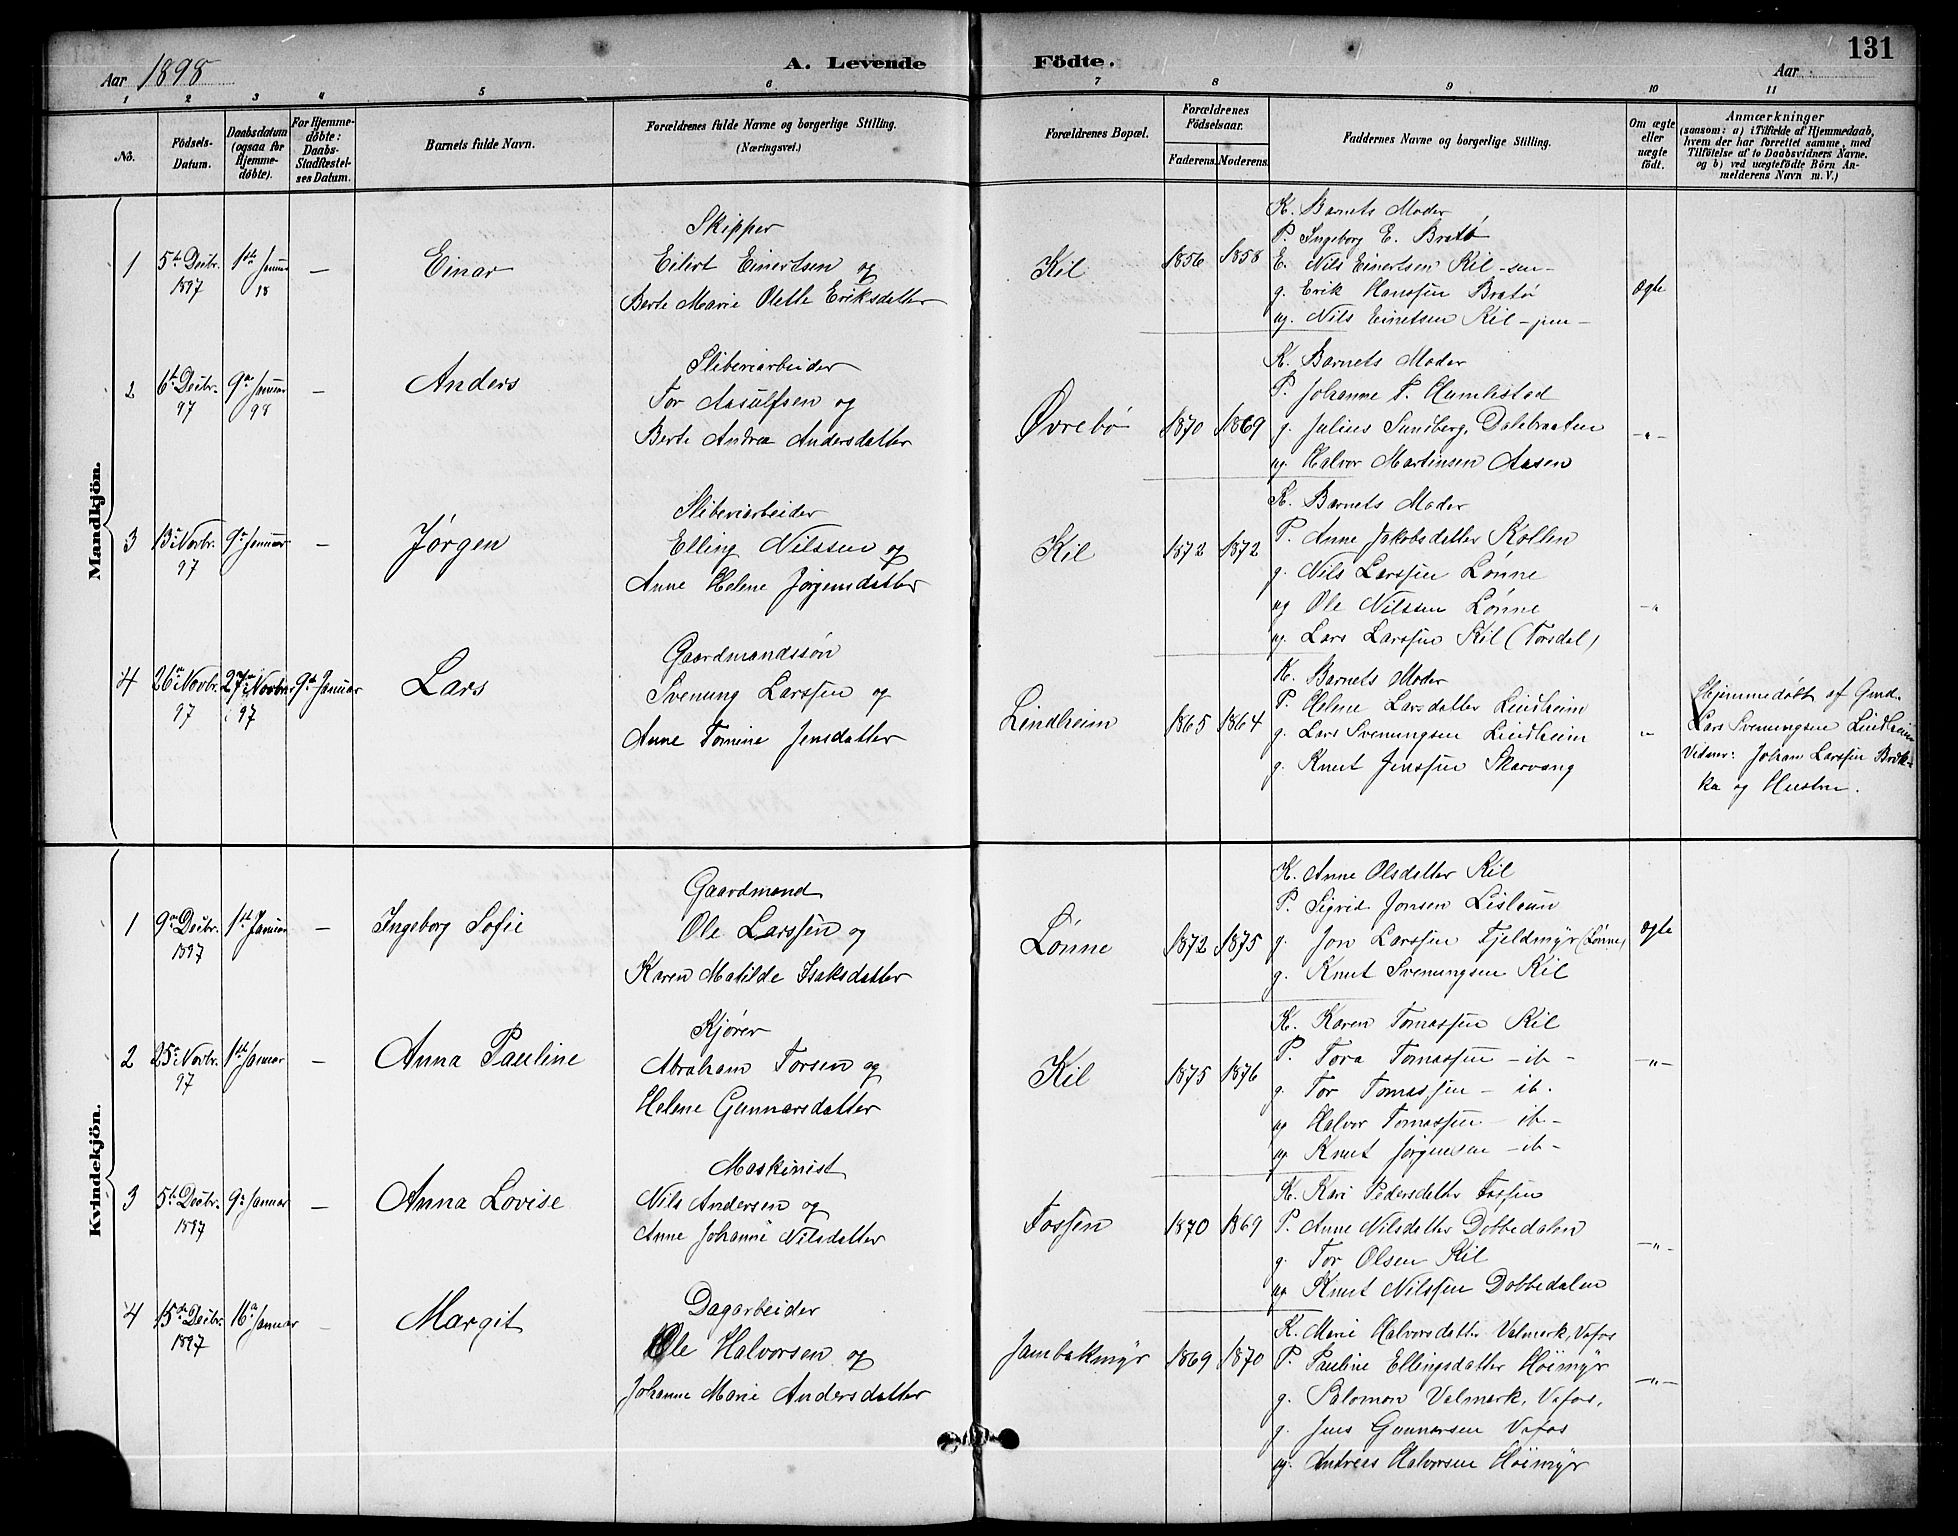 Aar 1898
A. Levende Födte.
131
Aar
1 2 3 4 5 6 7 8 9 10 11
No.
Födsels-Datum.
Daabsdatum (ogsaa for Hjemme-döbte).
For Hjemme-döbte: Daabs-Stadfæstel-ses Datum.
Barnets fulde Navn.
Forældrenes fulde Navne og borgerlige Stilling.
(Næringsvei.)
Forældrenes Bopæl.
Forældrenes Födselsaar.
Faderens. Moderens.
Faddernes Navne og borgerlige Stilling.
Om ægte eller uægte födt.
Anmærkninger
(saasom: a) i Tilfælde af Hjemmedaab,
hvem der har forrettet samme, med
Tilföielse af to Daabsvidners Navne.
og b) ved uægtefödte Börn An-
melderens Navn m. V.)
Mandkjön.
1 5te Decbr. 1897 1ste Januar 98 — Einar
Skipper
Eilert Einertsen og
Berte Marie Olette Eriksdatter
Kil 1856 1858
K. Barnets Moder
P. Ingeborg E. Bratø
E. Nils Einertsen Kil -sen-
g. Erik Hanssen Bratø
og. Nils Einertsen Kil -jun-
Ægte
2 6te Decbr. 97 9de Januar 98 — Anders
Sliberiarbeider
Tor Aasulfsen og
Berte Andrea Andersdatter
Øvrebø 1870 1869
K. Barnets Moder
P. Johanne T. Humlestad
g. Julius Sundberg, Dalsbraaten
og Halvor Martinsen Aasen
-"-
3 13de Novbr. 97 9de Januar — Jørgen
Sliberiarbeider
Elling Nilssen og
Anne Helene Jørgensdatter
Kil 1872 1872
K. Barnets Moder
P. Anne Jakobsdatter Kollen
g. Nils Larssen Lønne
og Ole Nilssen Lønne
og. Lars Larssen Kil (Torsdal)
-"
4 26de Novbr. 97 27de Novbr. 97 9de Januar Lars
Gaardmandssøn
Svenung Larssen og
Anne Tomine Jensdatter
Lindheim 1865 1864
K. Barnets Moder
P. Helene Larsdatter Lindheim
g. Lars Svenungsen Lindheim
g. Knut Jenssen Skarvang
-"
Hjemmedøbt af Gmd.
Lars Svenungsen Lindheim
Vidner: Johan Larssen Brek-
ka og Hustru.
Kvindekjön.
1 9de Decbr. 1897 1ste Januar — Ingeborg Sofie
Gaardmand
Ole Larssen og
Karen Matilde Isaksdatter
Lønne 1872 1875
K. Anne Olsdatter Kil
P. Sigrid Jonsen Lislaun
g. Jon Larssen Fjeldmyr (Lønne)
g. Knut Svenungsen Kil
Ægte
2 25de Novbr. 97 1ste Januar — Anna Pauline
Kjører
Abraham Torsen og
Helene Gunnarsdatter
Kil 1875 1876
K. Karen Tomassen Kil
P. Tora Tomassen - ib -
g. Tor Tomassen - ib.
og Halvor Tomassen - ib -
og Knut Jørgensen - ib -
-"-
3 5te Decbr. 1897 9de Januar — Anna Lovise
Maskinist
Nils Andersen og
Anne Johanne Nilsdatter
Fossen 1870 1869
K. Kari Pedersdatter Fossen
P. Anne Nilsdatter Dobbedalen
g. Tor Olsen Kil
og Knut Nilssen Dobbedalen
-"-
4 15de Decbr. 1897 16de Januar — Margit
Dagarbeider
Ole Halvorsen og
Johanne Marie Andersdatter
Jambakmyr 1869 1870
K. Marie Halvorsdatter Valmerk, Vafos
P. Pauline Ellingsdatter Høimyr
g. Salomon Valmerk, Vafos,
g. Jens Gunnarsen Vafos
og. Andreas Halvorsen Høimyr
-"-